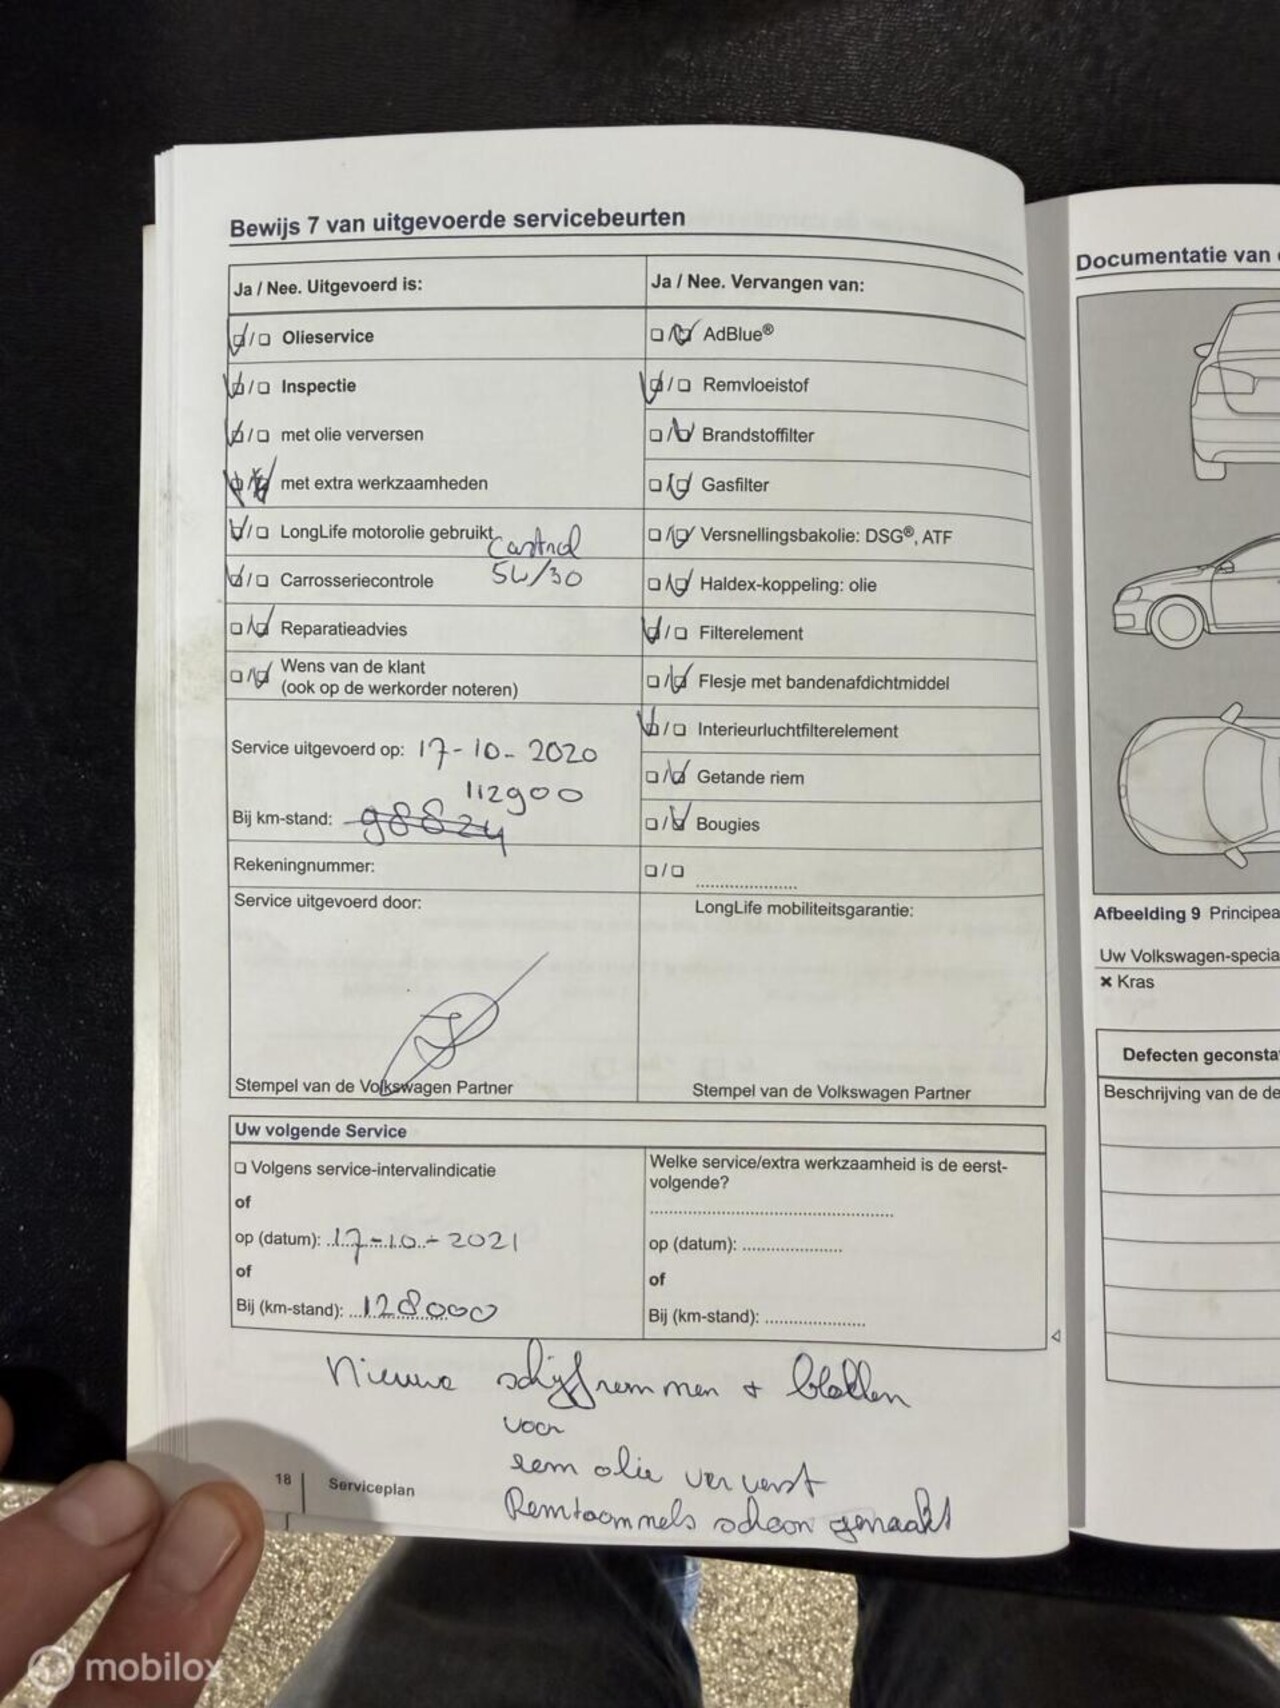 Bewijs 7 van uitgevoerde servicebeurten
Ja / Nee. Uitgevoerd is:
Olieservice
Inspectie
met olie verversen
met extra werkzaamheden
LongLife motorolie gebruikt
Castrol
5W/30
Carrosseriecontrole
Reparatieadvies
Wens van de klant
(ook op de werkorder noteren)
Service uitgevoerd op: 17-10-2020
112900
Bij km-stand: 98824
Rekeningnummer:
Service uitgevoerd door:
Stempel van de Volkswagen Partner
Ja / Nee. Vervangen van:
AdBlue®
Remvloeistof
Brandstoffilter
Gasfilter
Versnellingsbakolie: DSG®, ATF
Haldex-koppeling: olie
Filterelement
Flesje met bandenafdichtmiddel
Interieurluchtfilterelement
Getande riem
Bougies
LongLife mobiliteitsgarantie:
Stempel van de Volkswagen Partner
Uw volgende Service
Volgens service-intervalindicatie
of
op (datum): 17-10-2021
of
Bij (km-stand): 128000
Welke service/extra werkzaamheid is de eerst-
volgende?
op (datum):
of
Bij (km-stand):
Nieuwe schijfremmen + blokken
voor
rem olie ververst
Remtrommels schoon gemaakt
18 Serviceplan
Documentatie van
Afbeelding 9 Principea
Uw Volkswagen-specia
× Kras
Defecten geconsta
Beschrijving van de de
mobilox